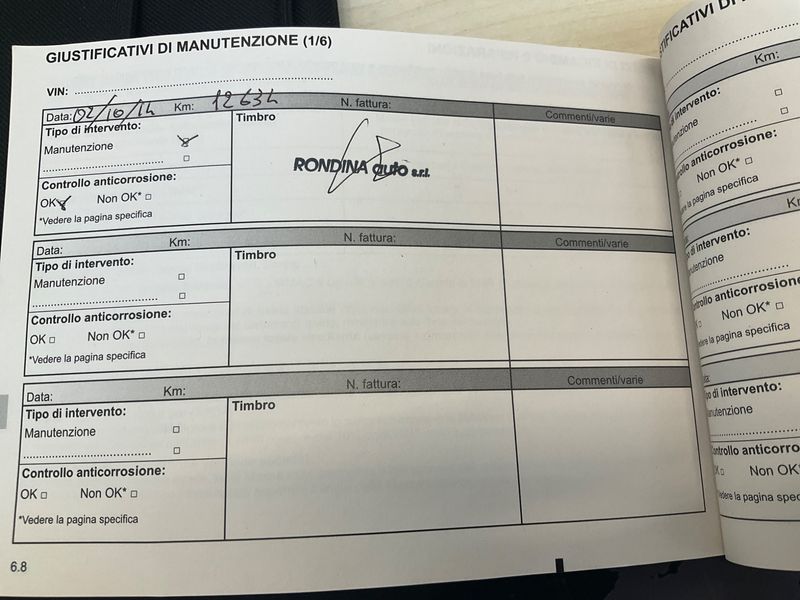 GIUSTIFICATIVI DI MANUTENZIONE (1/6)
VIN:
Data: 02/10/14 Km: 12634 N. fattura: Commenti/varie
Tipo di intervento:
Manutenzione
Timbro
RONDINA auto s.r.l.
Controllo anticorrosione:
OK Non OK*
*Vedere la pagina specifica
Data: Km: N. fattura: Commenti/varie
Tipo di intervento:
Manutenzione
Timbro
Controllo anticorrosione:
OK Non OK*
*Vedere la pagina specifica
Data: Km: N. fattura: Commenti/varie
Tipo di intervento:
Manutenzione
Timbro
Controllo anticorrosione:
OK Non OK*
*Vedere la pagina specifica
6.8
Km:
Non OK*
la pagina specifica
di intervento:
anticorrosione
Non OK*
Vedere la pagina specifica
po di intervento:
Non OK*